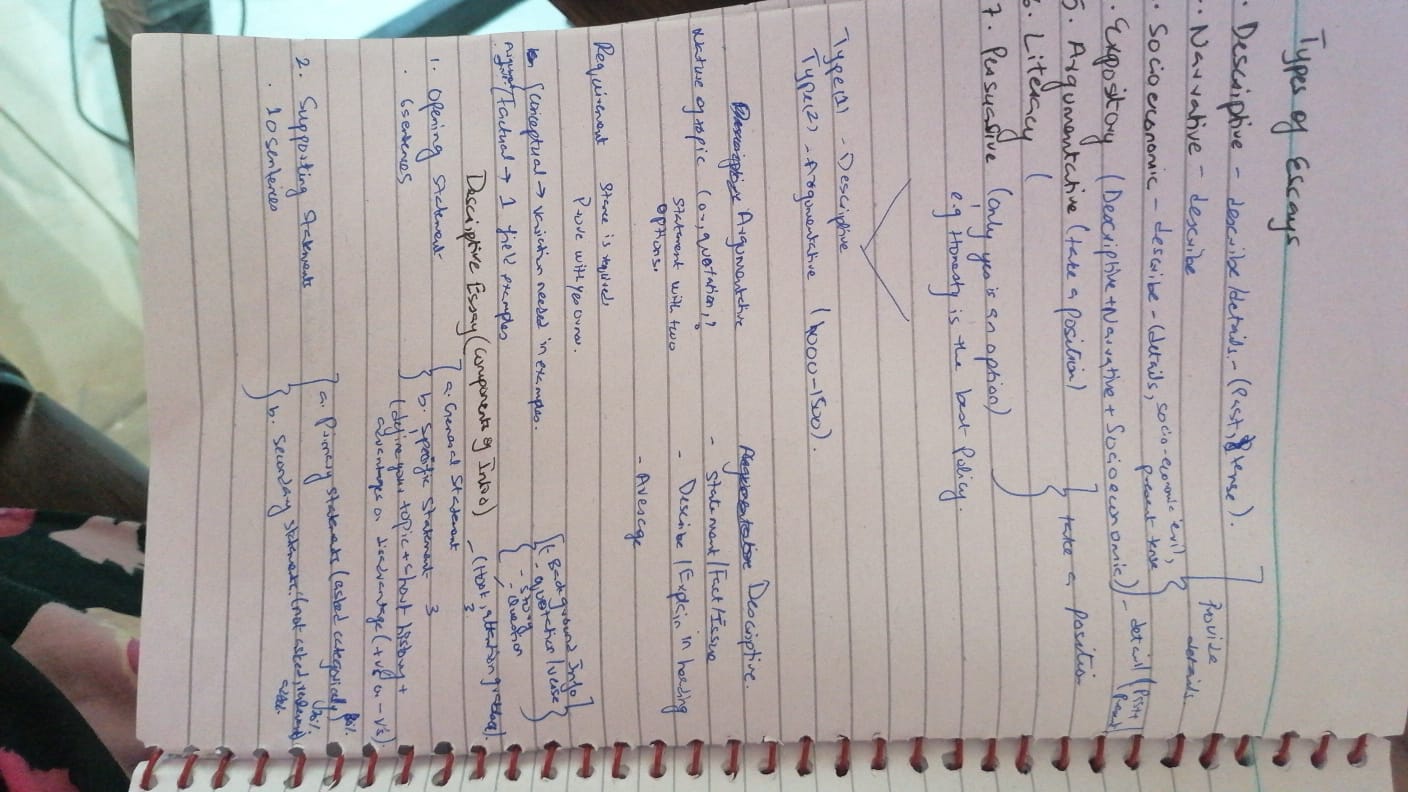 Types of Essays
. Descriptive - describe/details - (Past, tense).
.. Narrative - describe
Provide details
. Socioeconomic - describe - (details, socio-economic evil, present tense
. Expository (Descriptive + Narrative + Socioeconomic) - detail (Past + Present)
5. Argumentative (take a position)
take a position
6. Literacy (
7. Persuasive (only yes is an option)
e.g Honesty is the best Policy.
Type(1) - Descriptive
Type(2) - Argumentative (1000-1500).
Argumentative
Descriptive.
Nature of topic (or, quotation, ?
Statement with two
options.
- Statement/Fact/Issue
- Describe/Explain in heading
- Average
Requirement Stance is required
Prove with yes or no.
Conceptual → variation needed in examples.
Factual → 1 field examples
- Background Info
- quotation/verse
- Story
- Question
- (Hook, attention grabber).
3
Descriptive Essay (components of Intro)
1. Opening Statement
. 6 sentences
a. General Statement
b. Specific Statement 3
(define your topic + short history +
advantages or disadvantage (+v's or -v's)
2. Supporting Statements
. 10 sentences
a. Primary Statements (asked categorically)
b. Secondary Statements. (not asked,